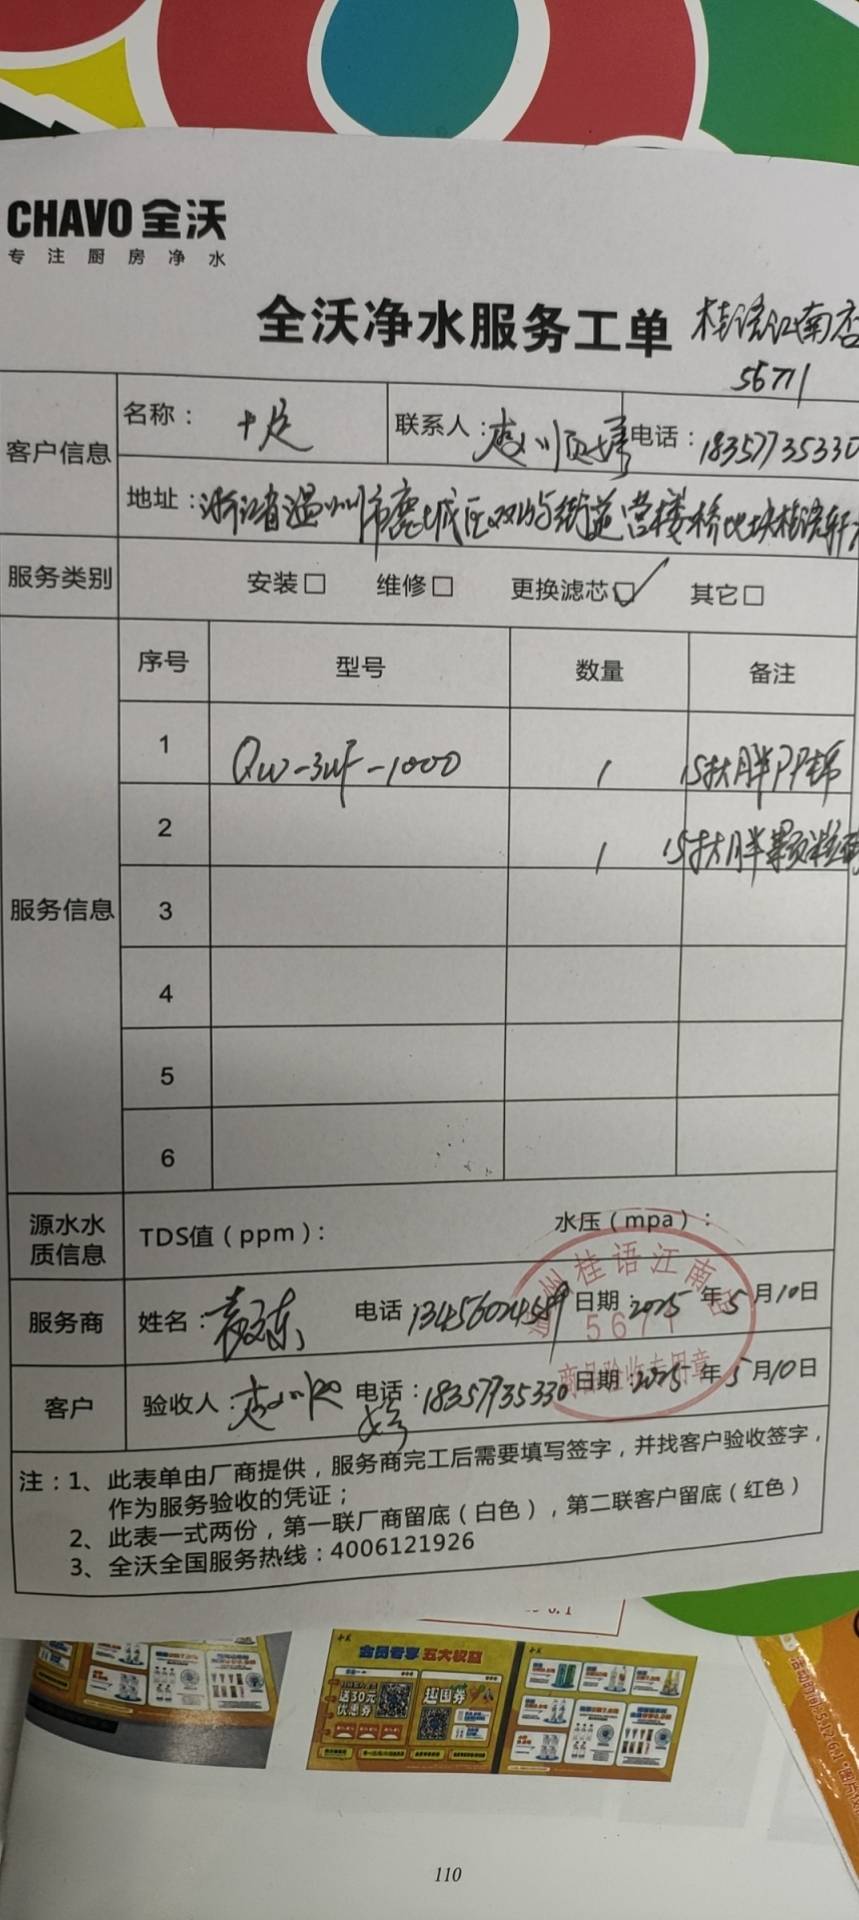 CHAVO 全沃
专注厨房净水
全沃净水服务工单 桂语江南店
56711
客户信息
名称： 十足 联系人： 电话：18357735330
地址：浙江省温州市鹿城区双屿街道营楼桥地块桂语轩
服务类别 安装□ 维修□ 更换滤芯☑ 其它□
服务信息
序号 型号 数量 备注
1 QW-3UF-1000 1 15寸大胖PP棉
2 1 15寸大胖颗粒
3
4
5
6
源水水质信息 TDS值（ppm）： 水压（mpa）：
桂语江南店
5671
商品验收专用章
服务商 姓名： 电话：13456024589 日期：2025年5月10日
客户 验收人： 电话：18357735330 日期：2025年5月10日
注：1、此表单由厂商提供，服务商完工后需要填写签字，并找客户验收签字，
作为服务验收的凭证；
2、此表一式两份，第一联厂商留底（白色），第二联客户留底（红色）
3、全沃全国服务热线：4006121926
会员专享 五大权益
送30元
优惠券
超国券
110